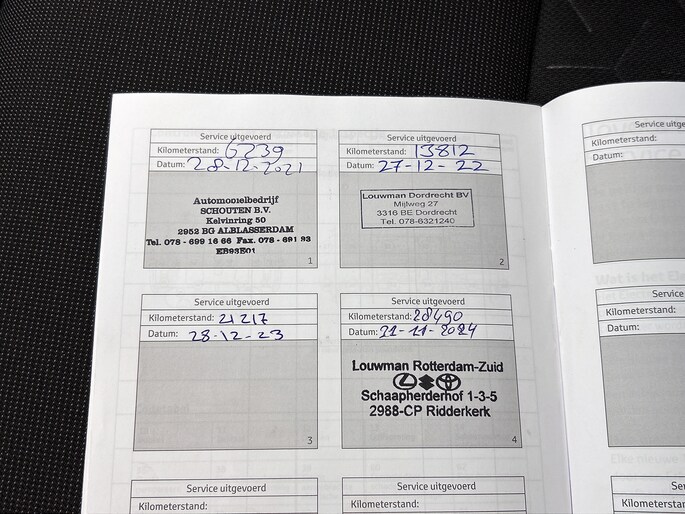 Service uitgevoerd
Kilometerstand: 6239
Datum: 28-12-2021
Automobielbedrijf
SCHOUTEN B.V.
Kelvinring 50
2952 BG ALBLASSERDAM
Tel. 078 - 699 16 66 Fax. 078 - 691 93
EB93E01
1
Service uitgevoerd
Kilometerstand: 13812
Datum: 27-12-22
Louwman Dordrecht BV
Mijlweg 27
3316 BE Dordrecht
Tel. 078-6321240
2
Service uitgevoerd
Kilometerstand: 21217
Datum: 28-12-23
3
Service uitgevoerd
Kilometerstand: 28490
Datum: 21-11-2024
Louwman Rotterdam-Zuid
Schaapherderhof 1-3-5
2988-CP Ridderkerk
4
Service uitgevoerd
Kilometerstand:
Service uitgevoerd
Kilometerstand:
Service ui
Kilometerstand:
Datum:
Service
Kilometerstand:
Datum:
Servi
Kilometerstand: